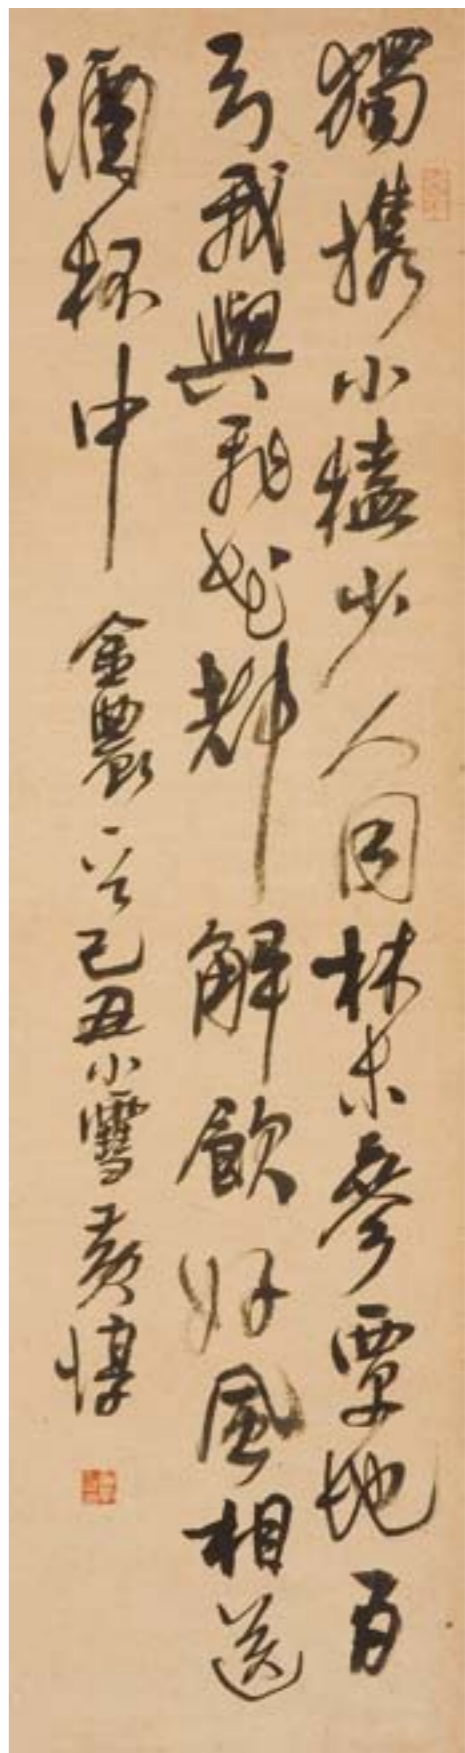 獨携小榼少人同林木參覃地百
弓我與飛花都解飲好風相送
酒杯中 金農一首己丑小雪黃惇